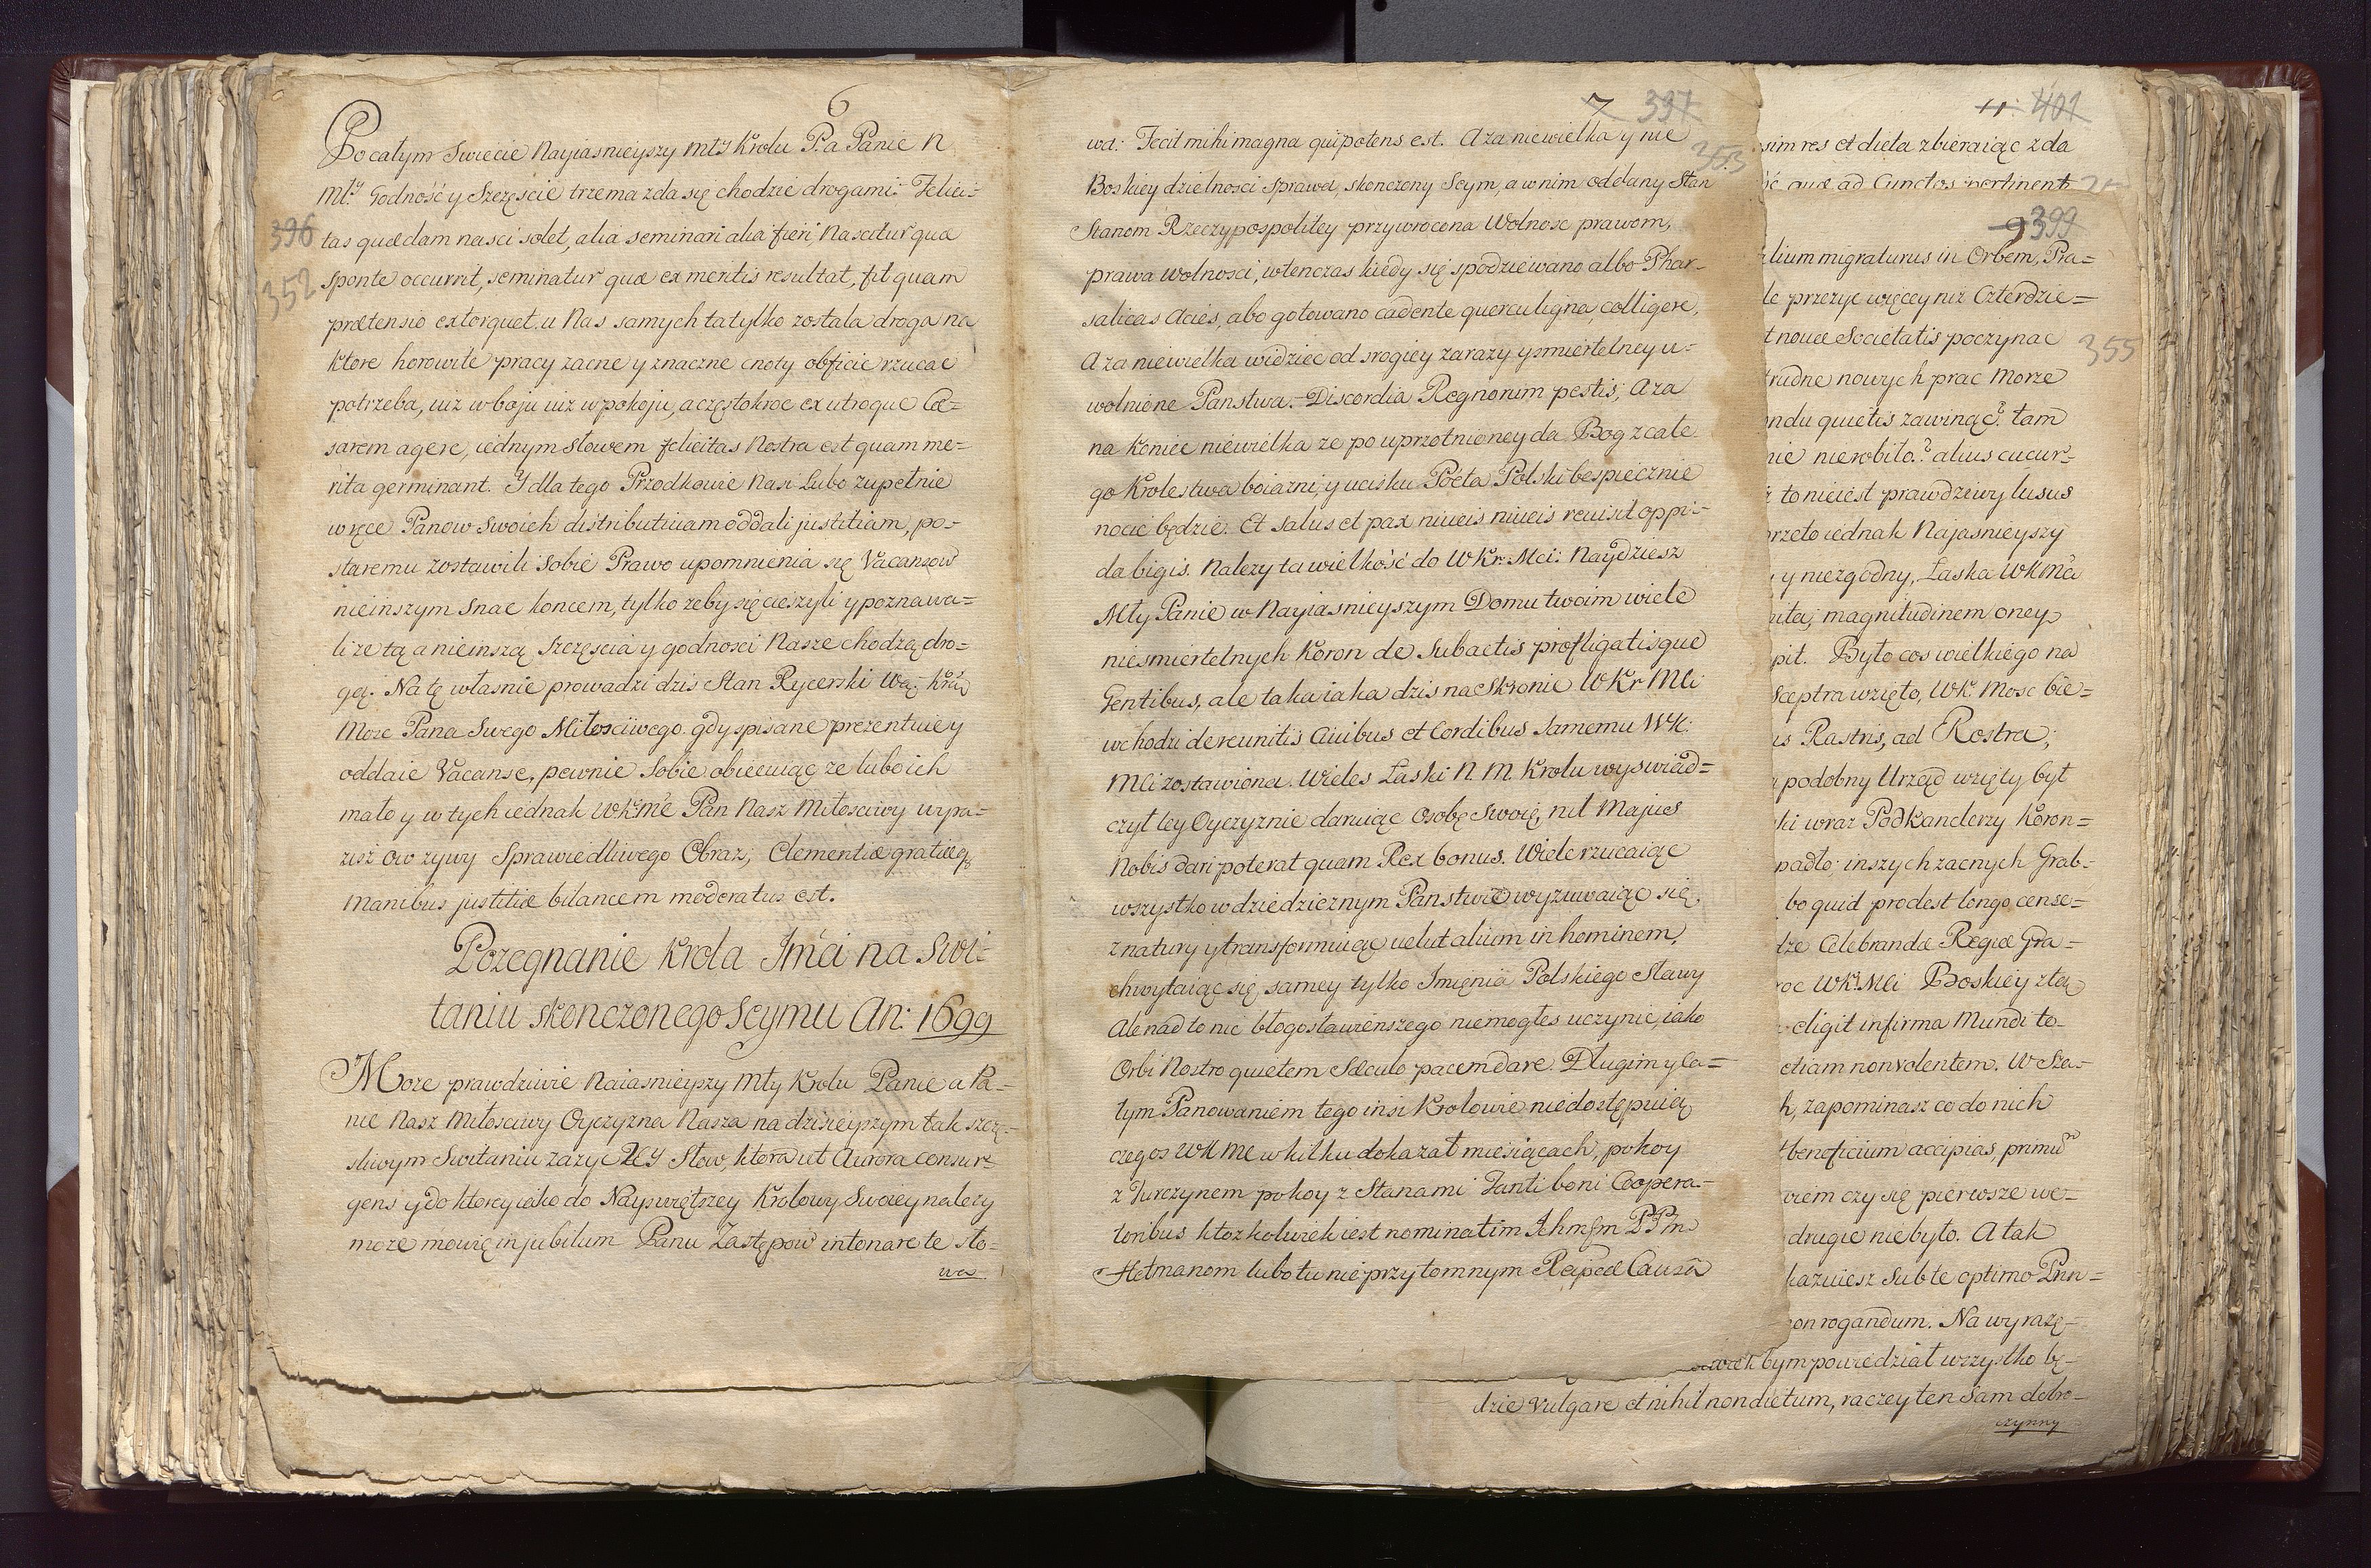 6
Po całym Swiecie Nayiasnieyszy Mły Krolu P. a Panie N
Mły Godność y Szczęscie trzema zda się chodzić drogami: Felici-
396
tas quædam nasci solet, alia seminari alia fieri, Nascitur quæ
352
sponte occurrit, seminatur quæ ex meritis resultat, fit quam
prætensio extorquet, u Nas samych ta tylko została droga na
ktore horowite pracy zacne y znaczne cnoty obficie rzucac
potrzeba, iuż w boju iuż w pokoju, a częstokroc ex utroque Cæ-
sarem agere, iednym słowem felicitas Nostra est quam me-
rita germinant. Y dla tego Przodkowie Nasi Lubo zupełnie
w ręce Panow Swoich distributivam oddali justitiam, po-
staremu zostawili Sobie Prawo upomnienia się Vacansow
nieinszym snac koncem, tylko żeby się cieszyli y poznawa-
li że tą a nieinszą szczęscia y godnosci Nasze chodzą dro-
gą. Na tę własnie prowadzi dzis Stan Rycerski
Moze Pana Swego Miłosciwego gdy spisane prezentuie y
oddaie Vacanse, pewnie Sobie obiecuiąc że lubo ich
mało y w tych iednak WKMć Pan Nasz Miłosciwy wyra-
zisz ow żywy Sprawiedliwego Obraz; Clementiæ gratiæq
manibus justitiæ bilancem moderatus est.
Pozegnanie Krola Jmci na Swi-
taniu skonczonego Seymu An: 1699
Moze prawdziwie Naiasnieyszy Mły Krolu Panie a Pa-
nie Nasz Miłosciwy Oyczyzna Nasza na dzisieyszym tak szczę-
sliwym Switaniu zażyc Słow, ktora ut Aurora consur-
gens y do ktorey iako do Nayswiętszey Krolowy Swoiey nalezy
moze mowię in jubilum Panu Zastępow intonare te sło-
wa
7 397
wa: Fecit mihi magna qui potens est. Aza niewielka y nie
353
Boskiey dzielnosci sprawa, skonczony Seym, a w nim oddany Stan
Stanom Rzeczypospolitey przywrocona Wolnosc prawom,
prawa wolnosci, wtenczas kiedy się spodziewano albo Phar-
salicas Acies, abo gotowano cadente quercu ligna colligere,
Aza niewielka widziec od srogiey zarazy y smiertelney u-
wolnione Panstwa. Discordia Regnorum pestis; Aza
na koniec niewielka ze po uprzątnioney da Bog z całe
go Krolestwa boiazni, y ucisku Poeta Polski bespiecznie
nocić będzie. Et salus et pax niveis revisit oppi-
da bigis. Nalezy ta wielkość do WKr: Mci: Naydziesz
Mły Panie w Nayiasnieyszym Domu twoim wiele
niesmiertelnych Koron de Subactis profligatisque
Gentibus, ale taka iaka dzis na Skronie WKr Mci
wchodzi de reunitis Civibus et Cordibus Samemu WK:
Mci zostawiona. Wieles Łaski N. M. Krolu wyswiad=
czył tey Oyczyznie daruiąc Osobę Swoię, nil Majus
Nobis dari poterat quam Rex bonus. Wiele rzucaiąc
wszystko w dziedzicznym Panstwie wyzuwaiąc się,
z natury y transformuiąc velut alium in hominem,
chwytaiąc się samey tylko Imięnia Polskiego Sławy
Ale nad to nic błogosławienszego niemogłes uczynic, iako
Orbi Nostro quietem Sæculo pacem dare. Długim y ca=
łym Panowaniem tego insi Krolowie niedostępuią
czegos WKMc w kilku dokazał miesiącach, pokoy
z Turczynem pokoy z Stanami Tanti boni Coopera-
toribus ktozkolwiek iest nominatim
Hetmanom lubo tu nie przytomnym Reipcæ Causa
11. 401
sim res et dicta zbieraiąc zda
quæ ad Cunctos pertinent
9 399
lium migraturus in Orbem, Pra=
le przezyc więcey niz Czterdzie=
t novæ Societatis poczynac
355
trudne nowych prac Morze
ndu quietis zawinąć? tam
nie nierobiło? alius cucur-
to nieiest prawdziwy lusus
przeto iednak Najasnieyszy
y niezgodny, Łaska WKMci
magnitudinem oney
pit. Było cos wielkiego na
Sceptra wzięto, WK. Mosc bie=
is Rastris, ad Rostra;
podobny Urząd wzięty był
ki wraz Podkanclerzy Koron=
padło; inszych zacnych Grab-
bo quid prodest longo cense=
Celebranda Regiæ Gra=
WKMci Boskiey z tą
eligit infirma Mundi to-
etiam non volentem. W Sza-
h, zapominasz co do nich
beneficium accipias, primu
wiem czy się pierwsze we=
drugie niebyło. A tak
kazuiesz Sub te optimo Prin=
non rogandum. Na wyrazę-
bym powiedział wszystko bę-
dzie Vulgare et nihil non dictum, raczey ten sam dobro-
czynny